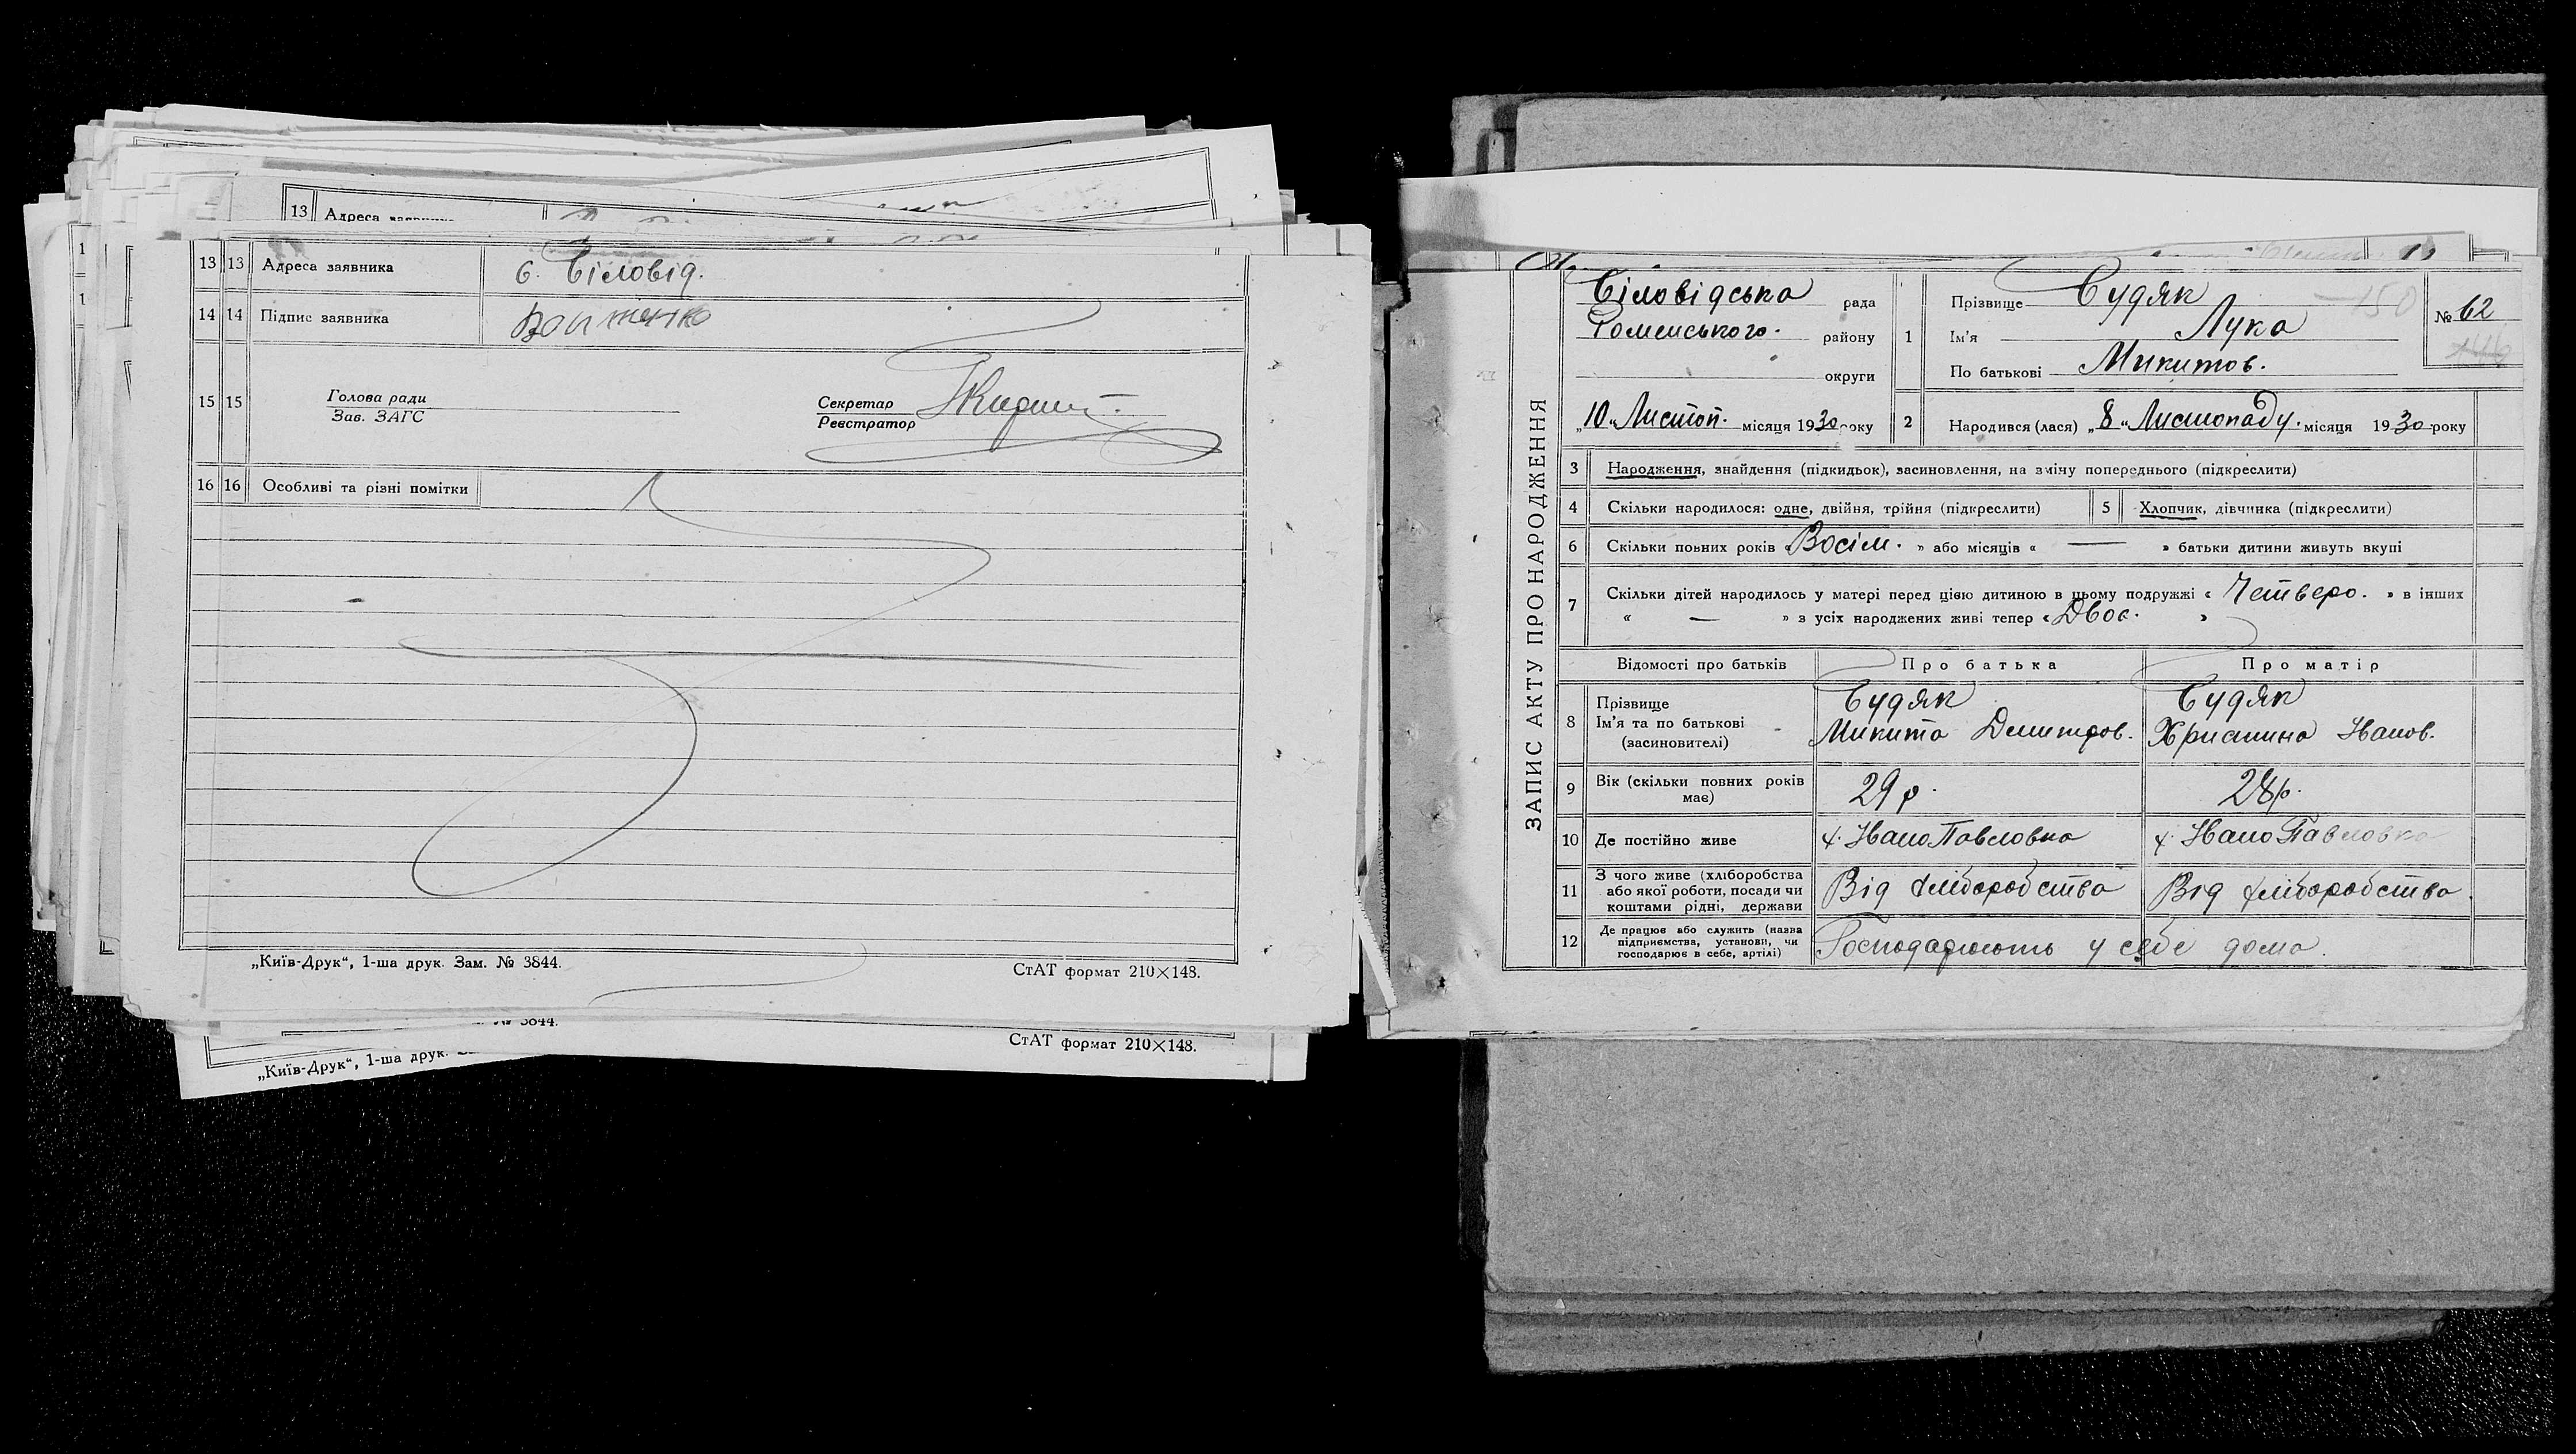 13 Адреса
13 13 Адреса заявника с. Біловід.
14 14 Підпис заявника
15 15 Голова ради
Зав. ЗАГС
Секретар
Реєстратор
16 16 Особливі та різні помітки
„Київ-Друк“, 1-ша друк. Зам. № 3844.
СтАТ формат 210×148.
№ 3844.
СтАТ формат 210×148.
„Київ-Друк“, 1-ша друк.
ЗАПИС АКТУ ПРО НАРОДЖЕННЯ
Біловідська рада
Роменського району
округи
„10“ Листоп. місяця 1930 року
1 Прізвище Будяк 150
Ім'я Лука
По батькові Микитов.
№ 62
146
2 Народився (лася) „8“ Листопаду. місяця 1930 року
3 Народження, знайдення (підкидьок), засиновлення, на зміну попереднього (підкреслити)
4 Скільки народилося: одне, двійня, трійня (підкреслити)
5 Хлопчик, дівчинка (підкреслити)
6 Скільки повних років « Восім. » або місяців « — » батьки дитини живуть вкупі
7 Скільки дітей народилось у матері перед цією дитиною в цьому подружжі « Четверо. » в інших
« — » з усіх народжених живі тепер « Двоє. »
Відомості про батьків Про батька Про матір
8 Прізвище Будяк Будяк
Ім'я та по батькові Микита Демитров. Христина Іванов.
(засновителі)
9 Вік (скільки повних років має) 29 р. 28 р.
10 Де постійно живе х. Івано Павловка х. Івано Павловка
11 З чого живе (хліборобства або якої роботи, посади чи коштами рідні, держави Від хліборобства Від хліборобства
12 Де працює або служить (назва підприємства, установи, чи господарює в себе, артілі) Господарюють у себе дома.